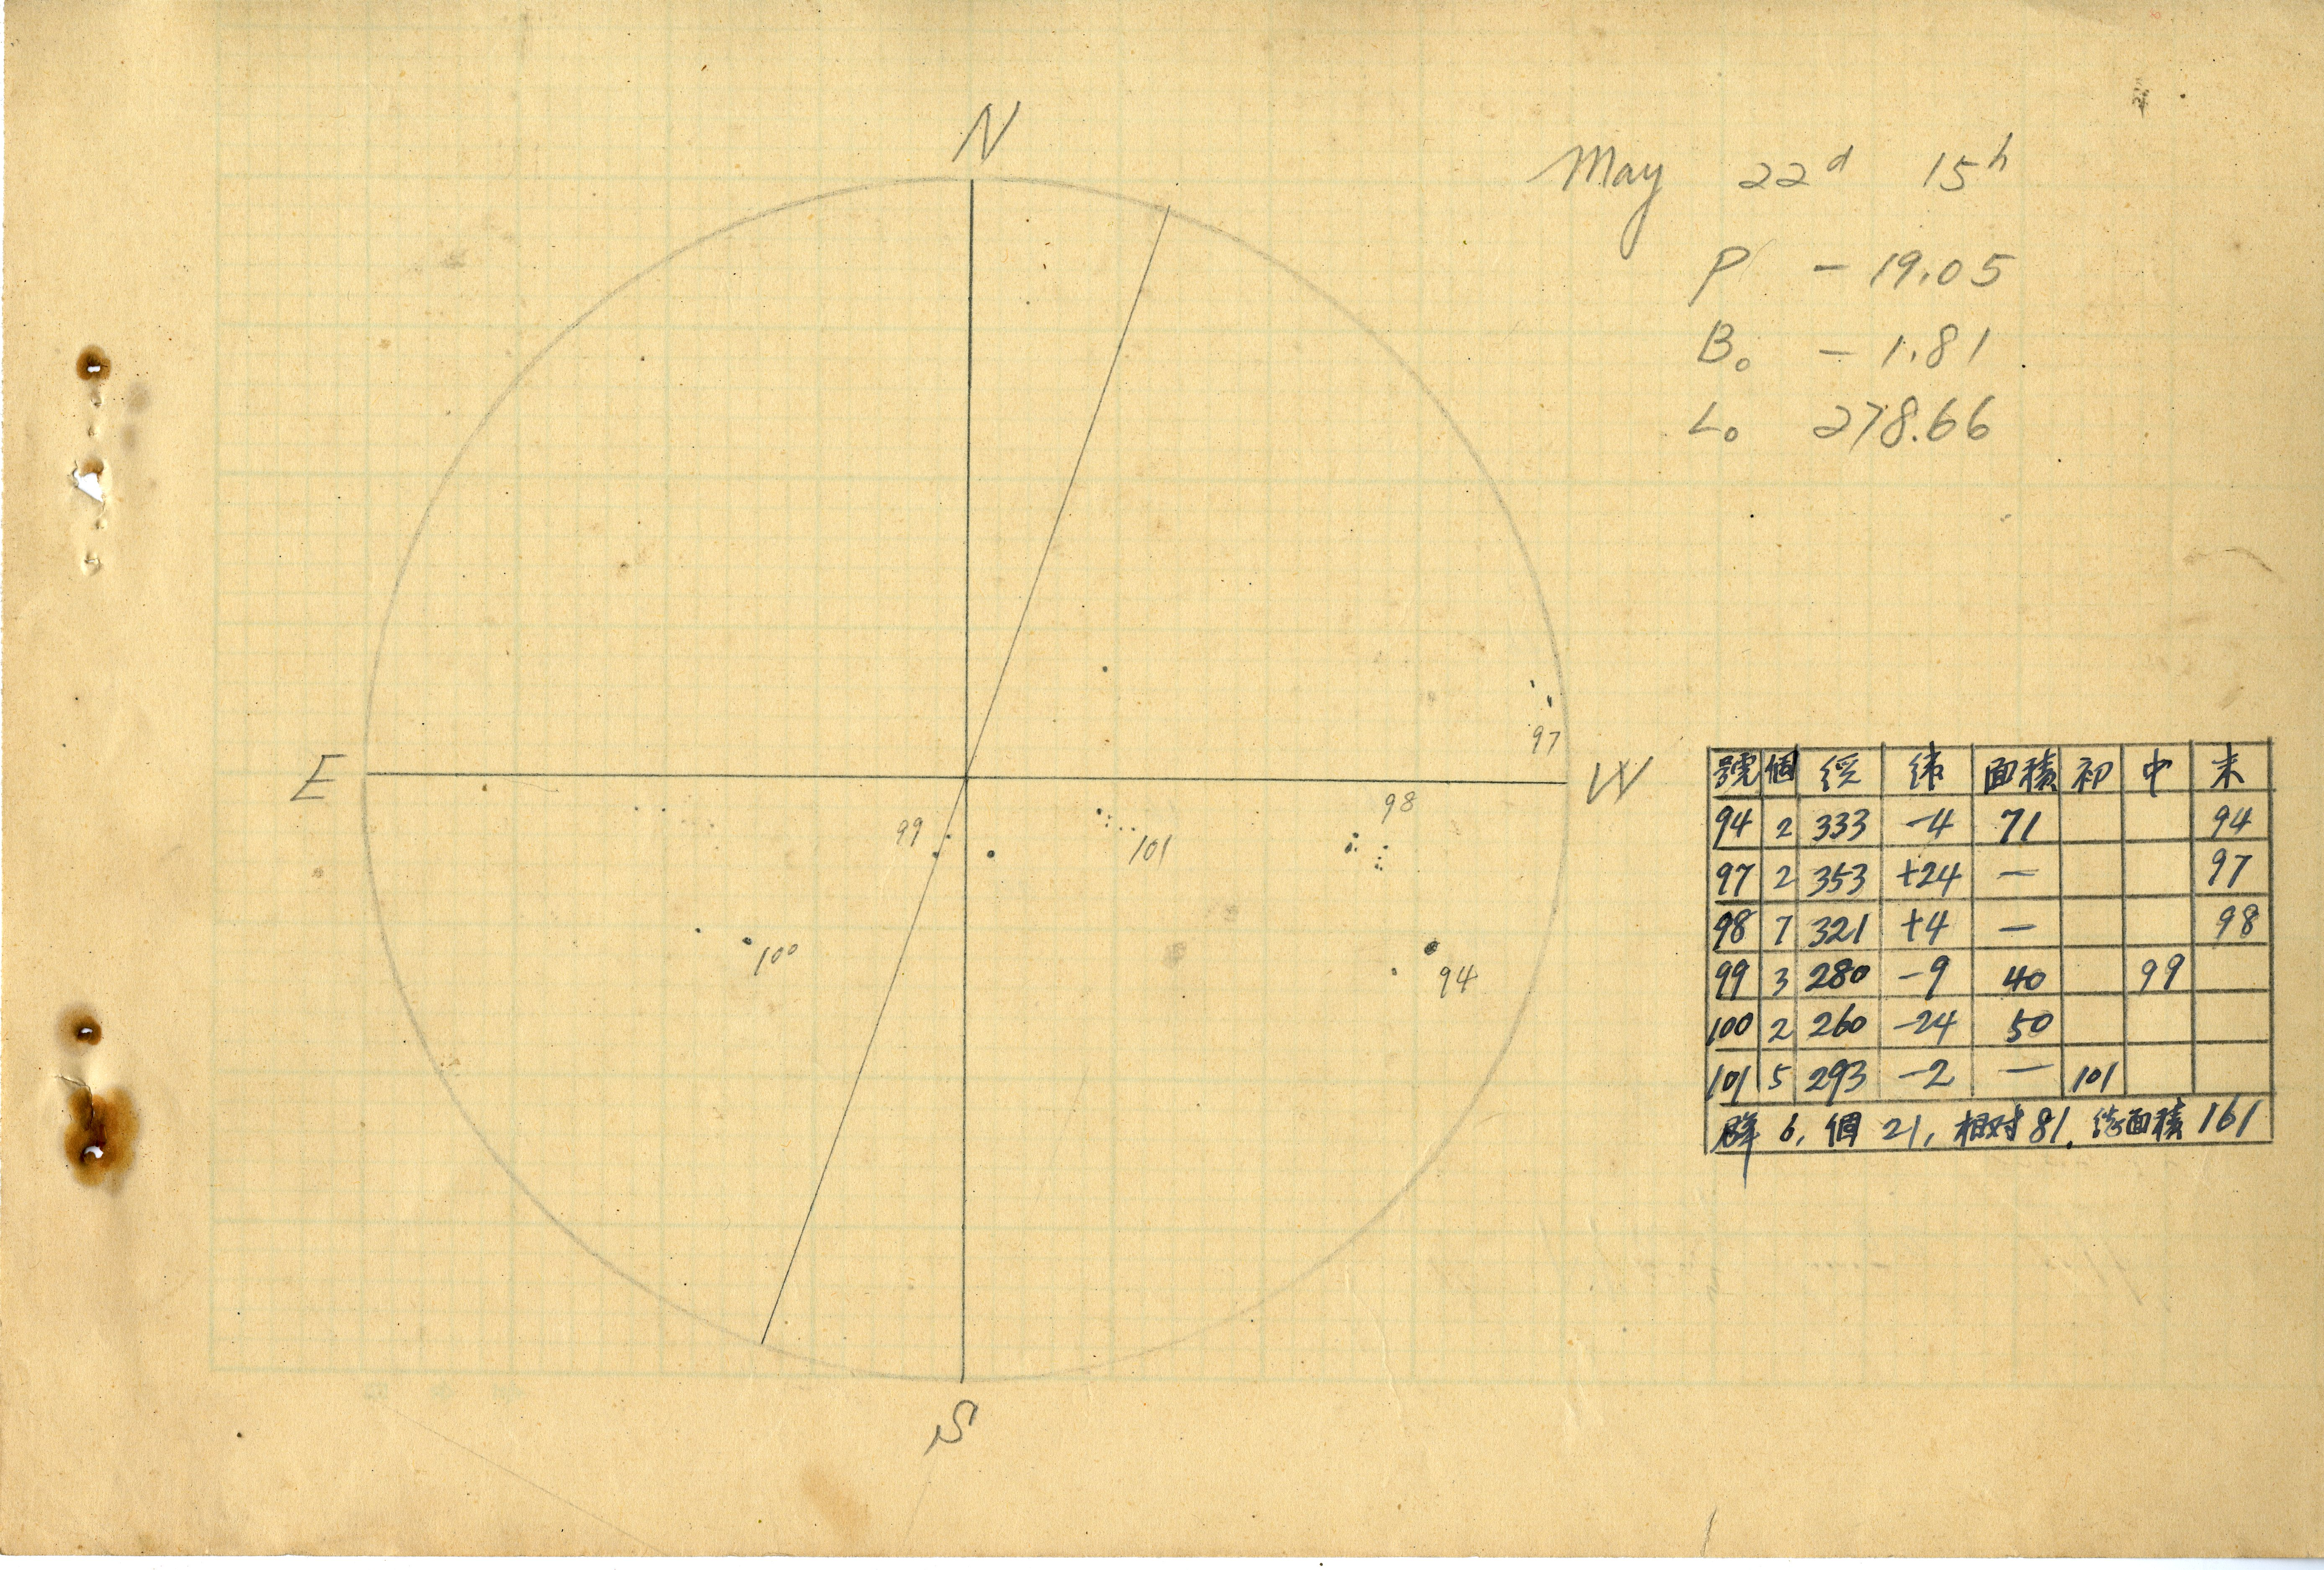 N
May 22d 15h
P - 19.05
B0 - 1.81
L0 278.66
E
W
S
97
98
99
101
100
94
號 個 経 緯 面積 初 中 末
94 2 333 -4 71 94
97 2 353 +24 — 97
98 7 321 +4 — 98
99 3 280 -9 40 99
100 2 260 -24 50
101 5 293 -2 — 101
群 6, 個 21, 相対 81, 総面積 161